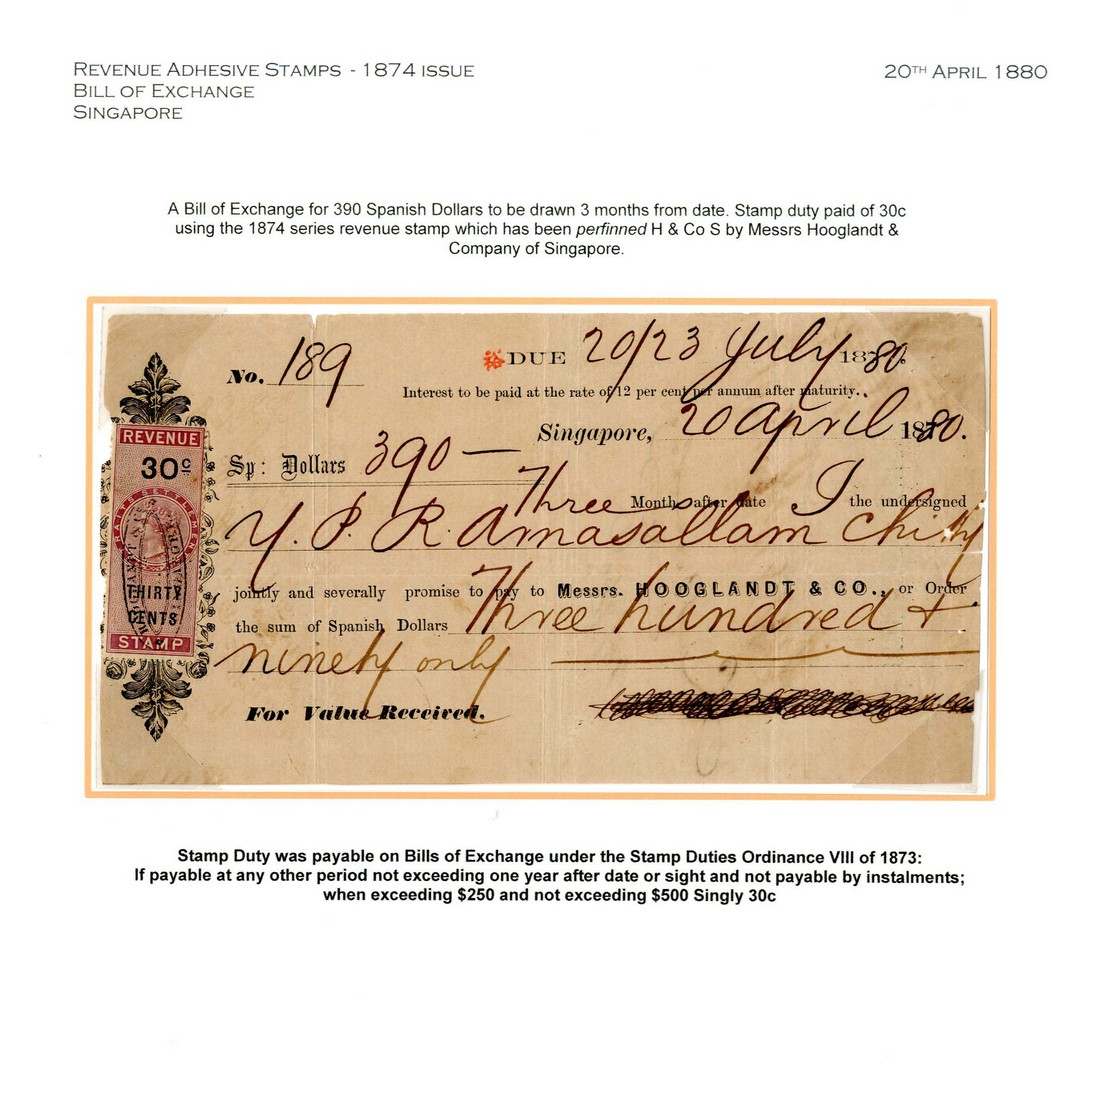 REVENUE ADHESIVE STAMPS - 1874 ISSUE
BILL OF EXCHANGE
SINGAPORE
20TH APRIL 1880
A Bill of Exchange for 390 Spanish Dollars to be drawn 3 months from date. Stamp duty paid of 30c
using the 1874 series revenue stamp which has been perfinned H & Co S by Messrs Hooglandt &
Company of Singapore.
No. 189
裕 DUE 20/23 July 1880.
Interest to be paid at the rate of 12 per cent per annum after maturity.
Singapore, 20 April 1880.
Sp: Dollars 390 —
Three Month after date I the undersigned
Y. P. R. Amasallam Chitty
jointly and severally promise to pay to Messrs. HOOGLANDT & CO., or Order
the sum of Spanish Dollars Three hundred +
ninety only
For Value Received.
REVENUE
30c
STRAITS SETTLEMENTS
THIRTY
CENTS
STAMP
Stamp Duty was payable on Bills of Exchange under the Stamp Duties Ordinance VIII of 1873:
If payable at any other period not exceeding one year after date or sight and not payable by instalments;
when exceeding $250 and not exceeding $500 Singly 30c